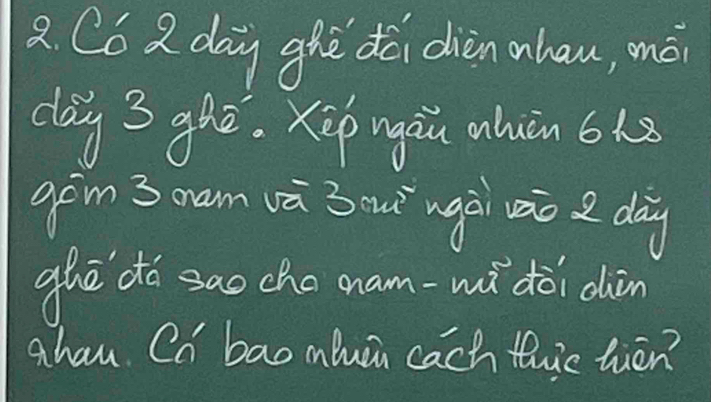 2. Có 2 dãy ghế đối diện nhau, mỗi
dãy 3 ghế. Xếp ngẫu nhiên 6 hs
gồm 3 nam và 3 nữ ngồi vào 2 dãy
ghế đó sao cho nam - nữ đối diện
nhau. Có bao nhiêu cách thực hiện?